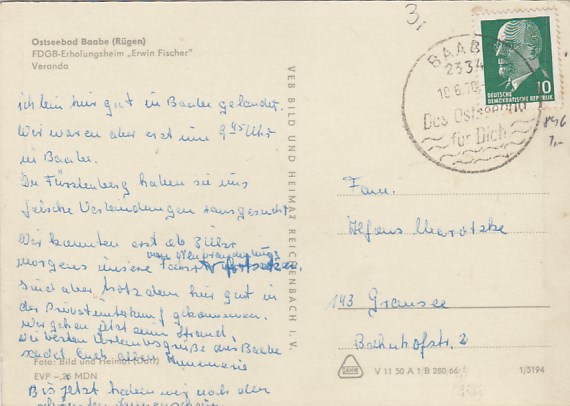 3,
Ostseebad Baabe (Rügen)
FDGB-Erholungsheim „Erwin Fischer“
Veranda
BAABE
2334
10.6.70
Das Ostseebad
für Dich
10
DEUTSCHE
DEMOKRATISCHE REPUBLIK
1,-
VEB BILD UND HEIMAT REICHENBACH i. V.
ich bin hier gut in Baabe gelandet.
Wir waren aber erst um 9 45 Uhr
in Baabe.
In Fürstenberg haben sie uns
falsche Verbindungen rausgesucht
Wir konnten erst ab
morgens unsere Fahrt fortsetzen.
sind aber trotzdem hier gut in
der Privatunterkunft gekommen.
Wir gehen jetzt zum Strand,
Die besten Urlaubsgrüße aus Baabe
sendet Euch allen
Foto: Bild und Heimat
EVP –,25 MDN
Bis jetzt haben wir noch den
schönsten
Fam.
Alfons Marotzke
143 Gransee
Bahnhofstr. 2
V 11 50 A 1/B 280 66
1/5194